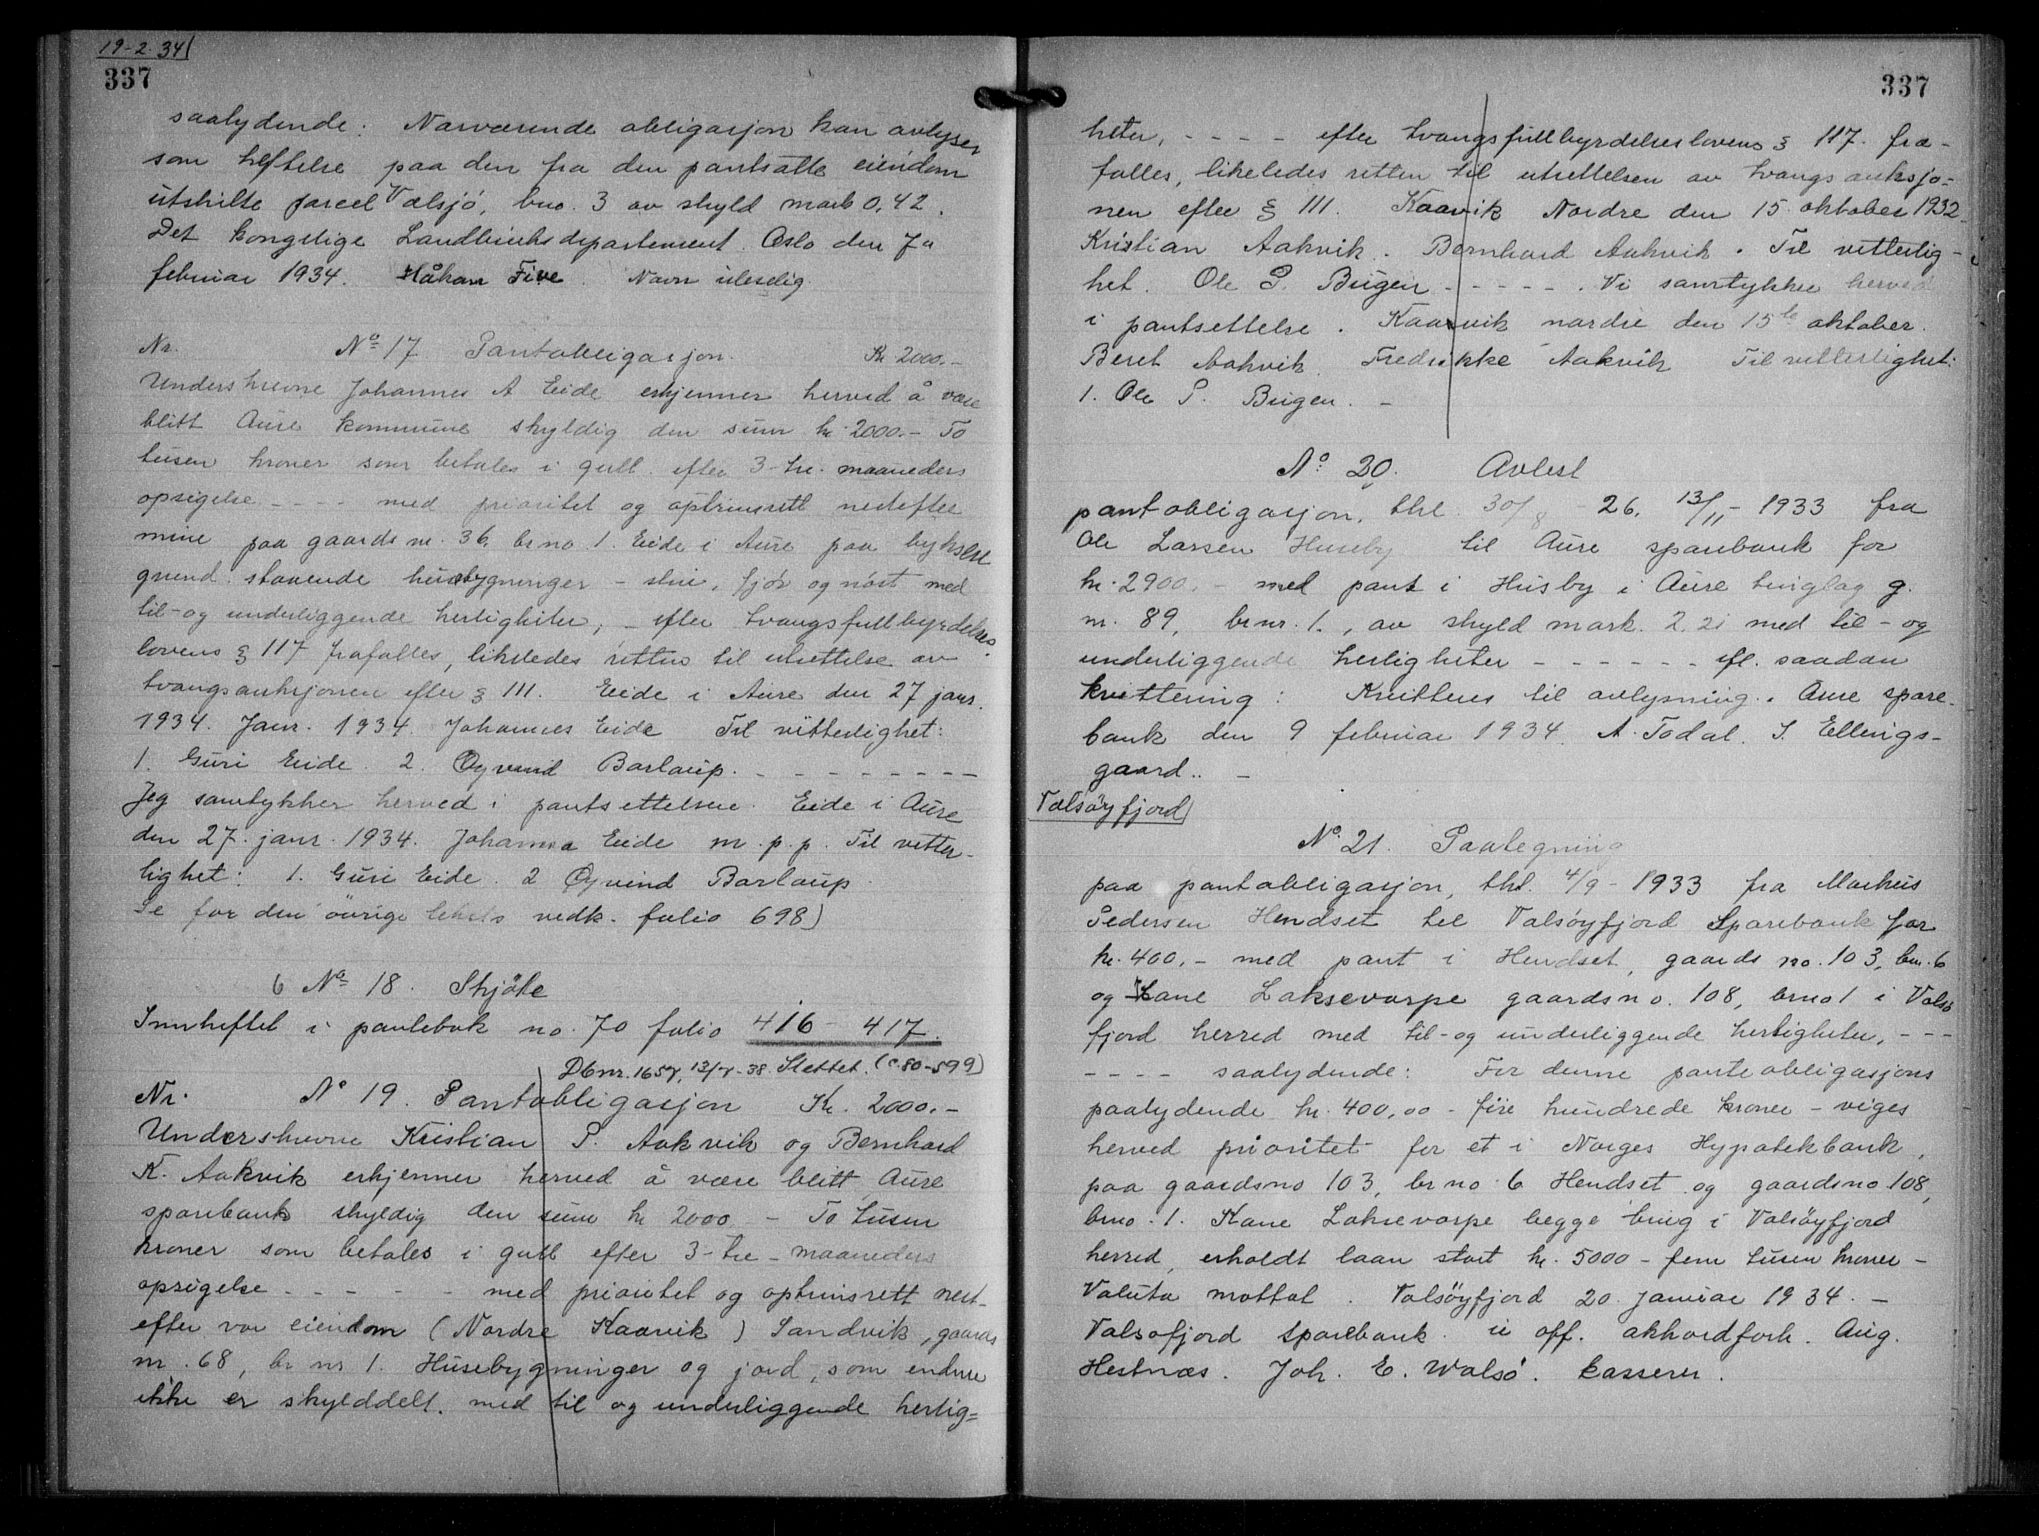 19-2-34
337
saalydende: Nærværende obligasjon kan avlyses
som heftelse paa den fra den pantsatte eiendom
utskilte parcel Valsjö, bno. 3 av skyld mark 0,42.
Det kongelige Landbruksdepartement. Oslo den 7a
februar 1934. Håkan Five. Navn uleselig.
Nr. No 17 Pantobligasjon. Kr 2000.-
Underskrevne Johannes A Eide erkjenner herved å være
blitt Aure kommune skyldig den sum kr. 2000.- To
tusen kroner som betales i gull efter 3-tre-maaneders
opsigelse - - - - med prioritet og optrinsrett nestefter
mine paa gaards nr. 36, brno. 1. Eide i Aure paa bykslet
grund staaende husbygninger - stue, fjös og nöst med
til-og underliggende herligheter, - efter tvangsfullbyrdelses-
lovens § 117 frafalles, likeledes retten til utsettelse av
tvangsauksjonen efter § 111. Eide i Aure den 27 janr.
1934. Janr. 1934. Johannes Eide Til vitterlighet:
1. Guri Eide. 2. Öyvind Barlaup. - - - - - - - -
Jeg samtykker herved i pantsettelsen. Eide i Aure
den 27. janr. 1934. Johanna Eide m.p.p. Til vitter-
lighet: 1. Guri Eide. 2 Öyvind Barlaup
Se for den övrige teksts vedk. folio 698)
6 No 18. Skjöte
Innheftet i pantebok no. 70 folio 416 - 417.
Dbnr. 1657, 13/7-38. Slettet. (P.80-599)
Nr. No 19. Pantobligasjon Kr. 2000.-
Underskrevne Kristian P. Aakvik og Bernhard
K. Aakvik erkjenner herved å være blitt Aure
sparebank skyldig den sum kr 2000 - To tusen
kroner som betales i gull efter 3-tre-maaneders
opsigelse - - - - - med prioritet og optrinsrett nest-
efter vor eiendom (Nordre Kaarvik) Sandvik, gaards
nr. 68, br nr 1. Husebygninger og jord, som endnu
ikke er skylddelt. med til og underliggende herlig=
337
heter, - - - - efter tvangsfullbyrdelseslovens § 117. fra-
falles, likeledes retten til utsettelsen av tvangsauksjo-
nen efter § 111. Kaarvik Nordre den 15. oktober 1932.
Kristian Aakvik. Bernhard Aakvik. Til vitterlig-
het. Ole P. Bugen - - - - - . Vi samtykker herved
i pantsettelse. Kaarvik nordre den 15de oktober.
Beret Aakvik. Fredrikke Aakvik Til vitterlighet:
1. Ole P. Bugen. -
No 20. Avlest
pantobligasjon, thl. 30/8 - 26, 13/11- 1933 fra
Ole Larsen Huseby til Aure sparebank for
kr. 2900.- med pant i Husby i Aure tinglag g.
nr. 89, brnr. 1., av skyld mark. 2 21 med til - og
underliggende herligheter - - - - - - efl. saadan
kvittering: Kvitteres til avlysning. Aure spare-
bank den 9 februar 1934. A. Todal. S. Ellings-
gaard.. -
Valsöyfjord
No. 21. Paategning
paa pantobligasjon, thl. 4/9 - 1933 fra Markus
Pedersen Hendset til Valsöyfjord Sparebank for
kr. 400.- med pant i Hendset, gaards no. 103, bno. 6
og Kane Laksevarpe gaardsno. 108, brno 1 i Valsö
fjord herred med til-og underliggende herligheter, - - -
- - - - saalydende: For denne panteobligasjons
paalydende kr. 400,00 - fire hundrede kroner - viges
herved prioritet for et i Norges Hypotekbank,
paa gaardsno 103, brno 6 Hendset og gaardsno 108,
brno. 1. Kane Laksevarpe begge brug i Valsöyfjord
herred, erholdt laan stort kr. 5000 - fem tusen kroner -
Valuta mottat. Valsöyfjord 20. januar 1934. -
Valsofjord Sparebank. u off. akkordforh. Aug.
Hestnæs. Joh. E. Walsö. kasserer.